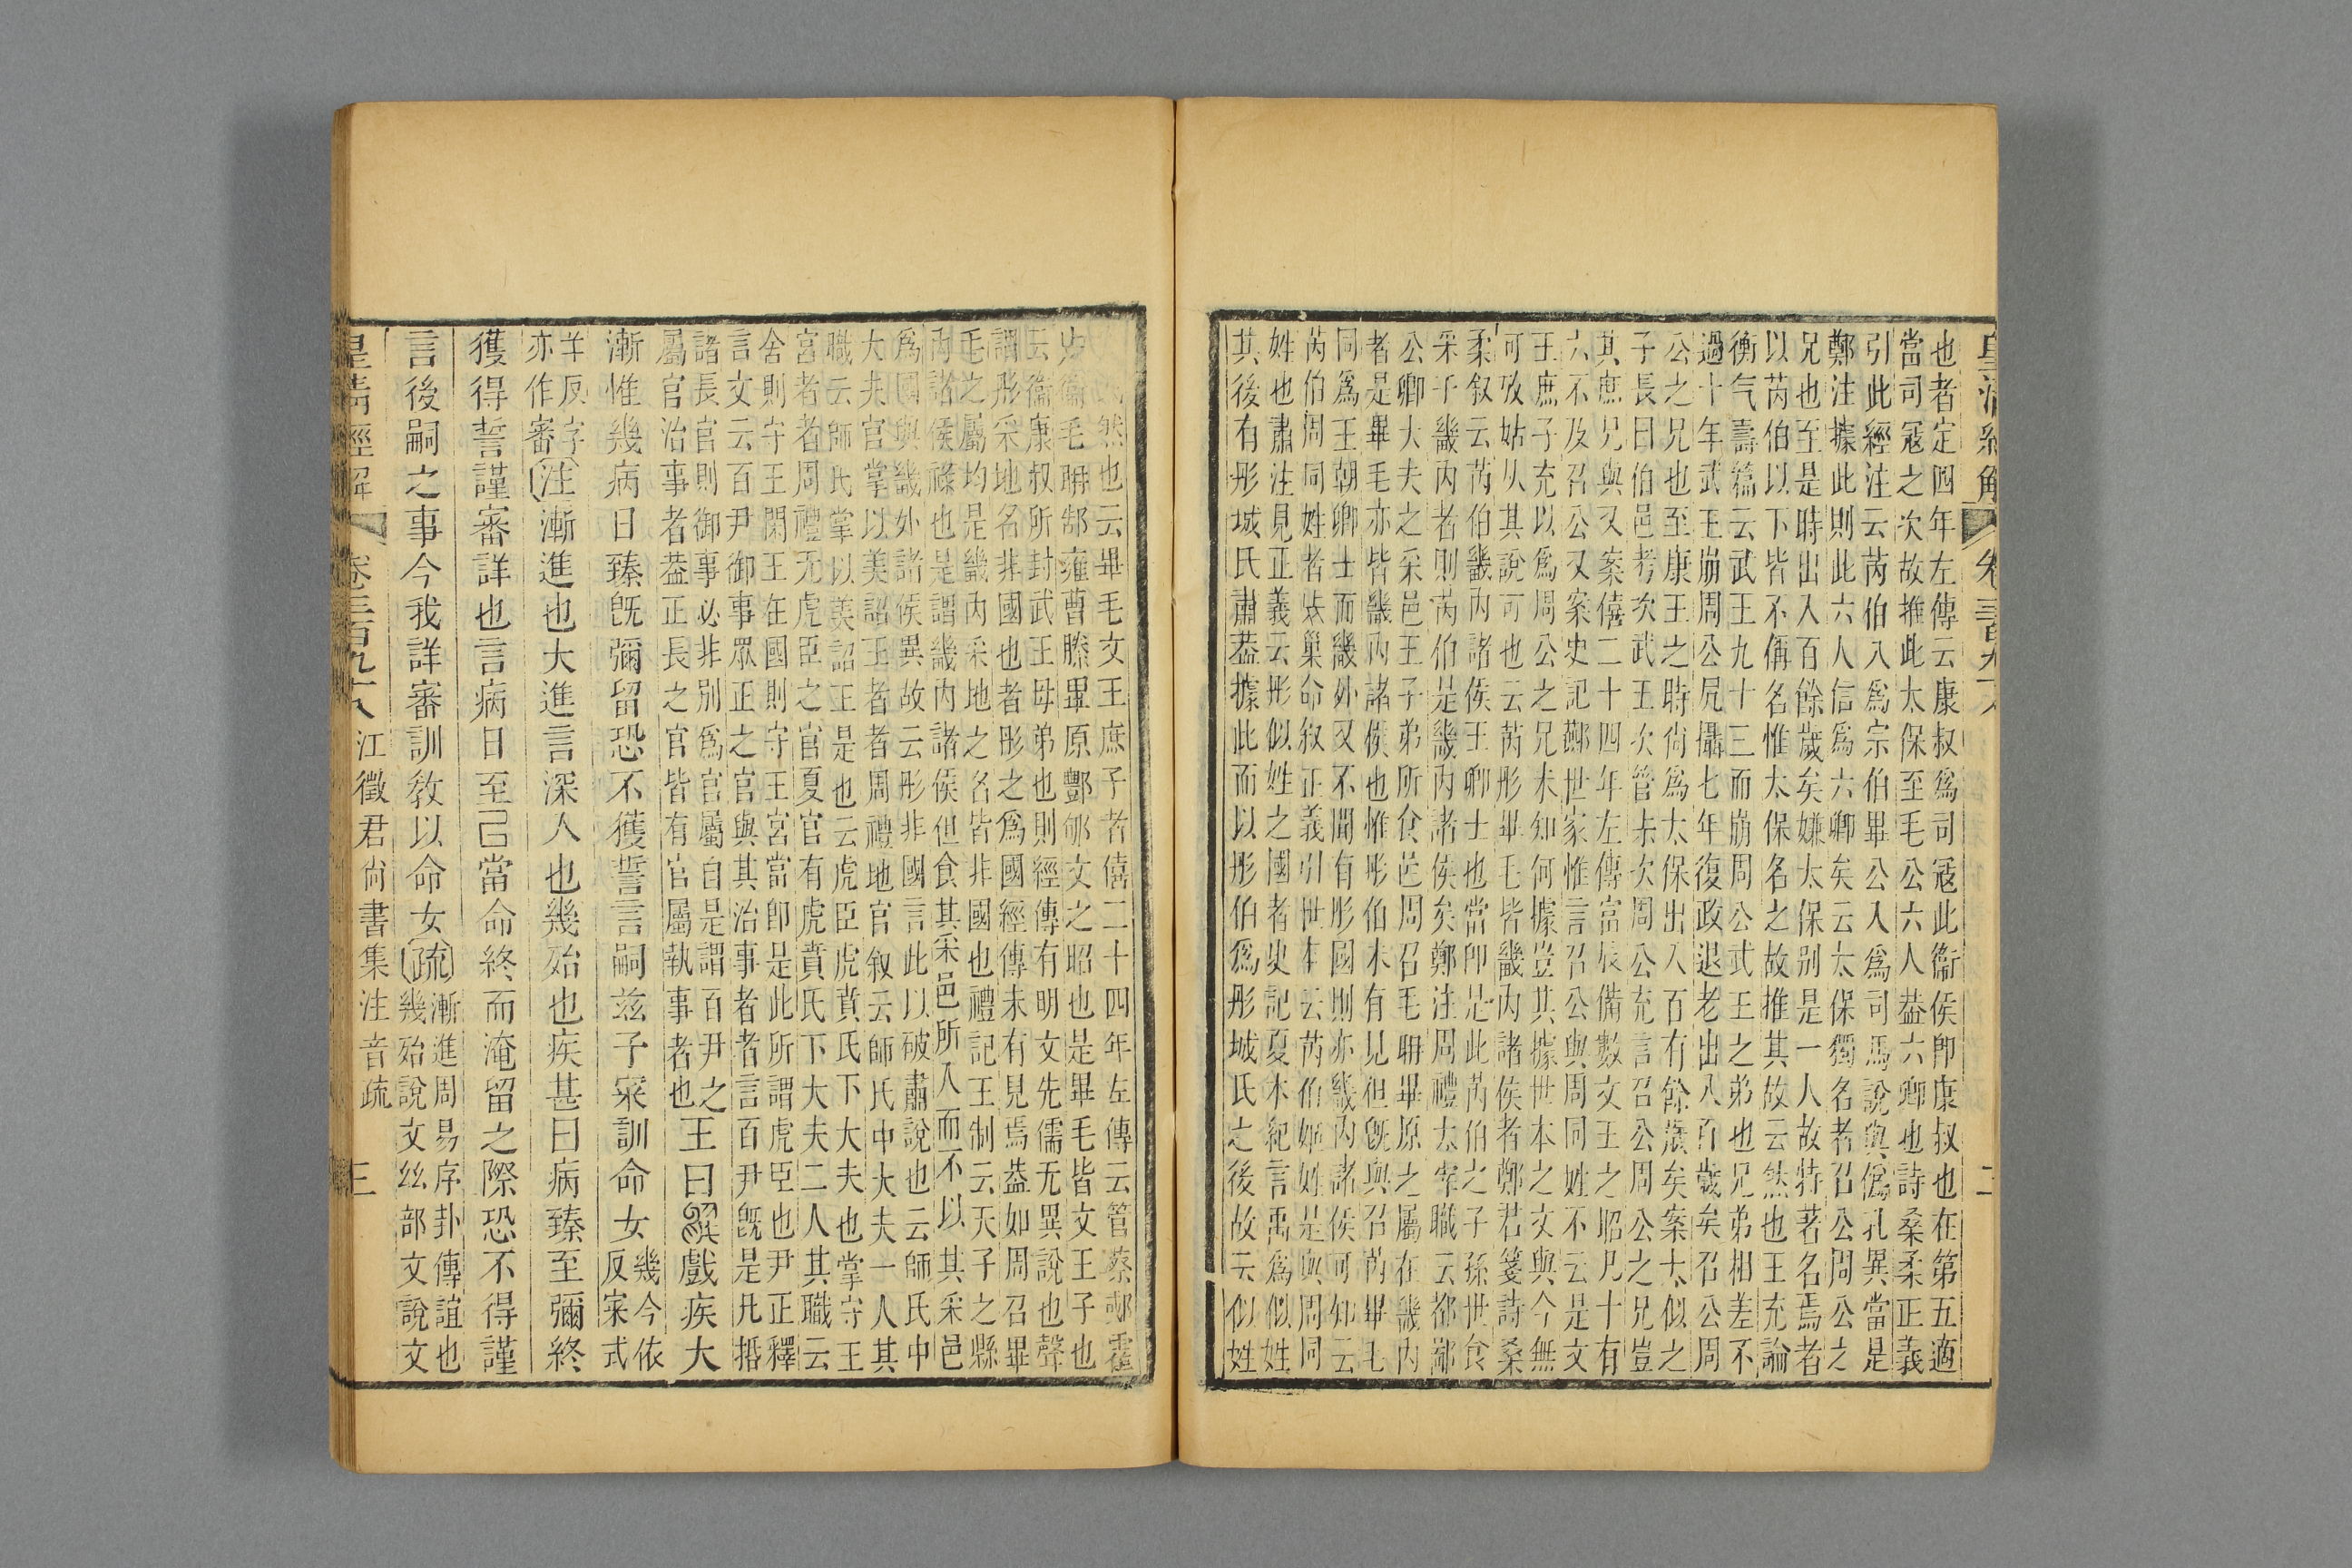 皇清經解
卷三百九十八
二
也者定四年左傳云康叔爲司寇此衞侯卽康叔也在第五適
當司寇之次故推此太保至毛公六人葢六卿也詩桑柔正義
引此經注云芮伯入爲宗伯畢公入爲司馬說與僞孔異當是
鄭注據此則此六人信爲六卿矣云太保獨名者召公周公之
兄也至是時出入百餘歲矣嫌太保别是一人故特著名焉者
以芮伯以下皆不偁名惟太保名之故推其故云然也王充論
衡气壽篇云武王九十三而崩周公武王之弟也兄弟相差不
過十年武王崩周公凥攝七年復政退老出入百歲矣召公周
公之兄也至康王之時尙爲太保出入百有餘歲矣案太似之
子長曰伯邑考次武王次管未次周公充言召公周公之兄豈
其庶兄與又案僖二十四年左傳富辰備數文王之昭凡十有
六不及召公又案史記鄾世家惟言召公與周同姓不云是文
王庶子充以爲周公之兄未知何據豈其據世本之文與今無
可攷姑从其說可也云芮彤畢毛皆畿內諸侯者鄭君箋詩桑
柔叙云芮伯畿內諸侯王卿士也當卽是此芮伯之子孫世食
采子畿內者則芮伯是畿內諸侯矣鄭注周禮太宰職云都鄙
公卿大夫之采邑王子弟所食邑周召毛聃畢原之屬在畿內
者是畢毛亦皆畿內諸侯也惟彤伯未有見但旣與召芮畢毛
同爲王朝卿士而畿外又不聞有彤國則亦畿內諸侯可知云
芮伯周同姓者㳒巢命叙正義引世本云芮伯姬姓是與周同
姓也肅注見正義云彤似姓之國者史記夏本紀言禹爲似姓
其後有彤城氏肅葢據此而以彤伯爲彤城氏之後故云似姓
然也云畢毛文王庶子者僖二十四年左傳云管蔡郕霍
衞毛聃郜雍曹滕畢原酆郇文之昭也是畢毛皆文王子也
云衞康叔所封武王母弟也則經傳有明文先儒无異說也聲
謂彤采地名非國也者彤之爲國經傳未有見焉葢如周召畢
毛之屬均是畿內采地之名皆非國也禮記王制云天子之縣
內諸侯祿也是謂畿內諸侯但食其采邑所入而不以其采邑
爲國與畿外諸侯異故云彤非國言此以破肅說也云師氏中
大夫官掌以美詔王者者周禮地官叙云師氏中大夫一人其
職云師氏掌以美詔王是也云虎臣虎賁氏下大夫也掌守王
宮者者周禮无虎臣之官夏官有虎賁氏下大夫二人其職云
舍則守王閑王在國則守王宮當卽是此所謂虎臣也尹正釋
言文云百尹御事眾正之官與其治事者者言百尹旣是凡㨔
諸長官則御事必非別爲官屬自是謂百尹之
屬官治事者葢正長之官皆有官屬執事者也王曰烏戲疾大
漸惟幾病日臻旣彌留恐不獲誓言嗣兹予宷訓命女幾今依
反宷式
羊反字
亦作審注漸進也大進言深入也幾殆也疾甚曰病臻至彌終
獲得誓謹審詳也言病日至己當命終而淹留之際恐不得謹
言後嗣之事今我詳審訓敎以命女疏漸進周易序卦傳誼也
幾殆說文𢆶部文說文
皇清經解
卷三百九十八
江徵君尙書集注音疏
三